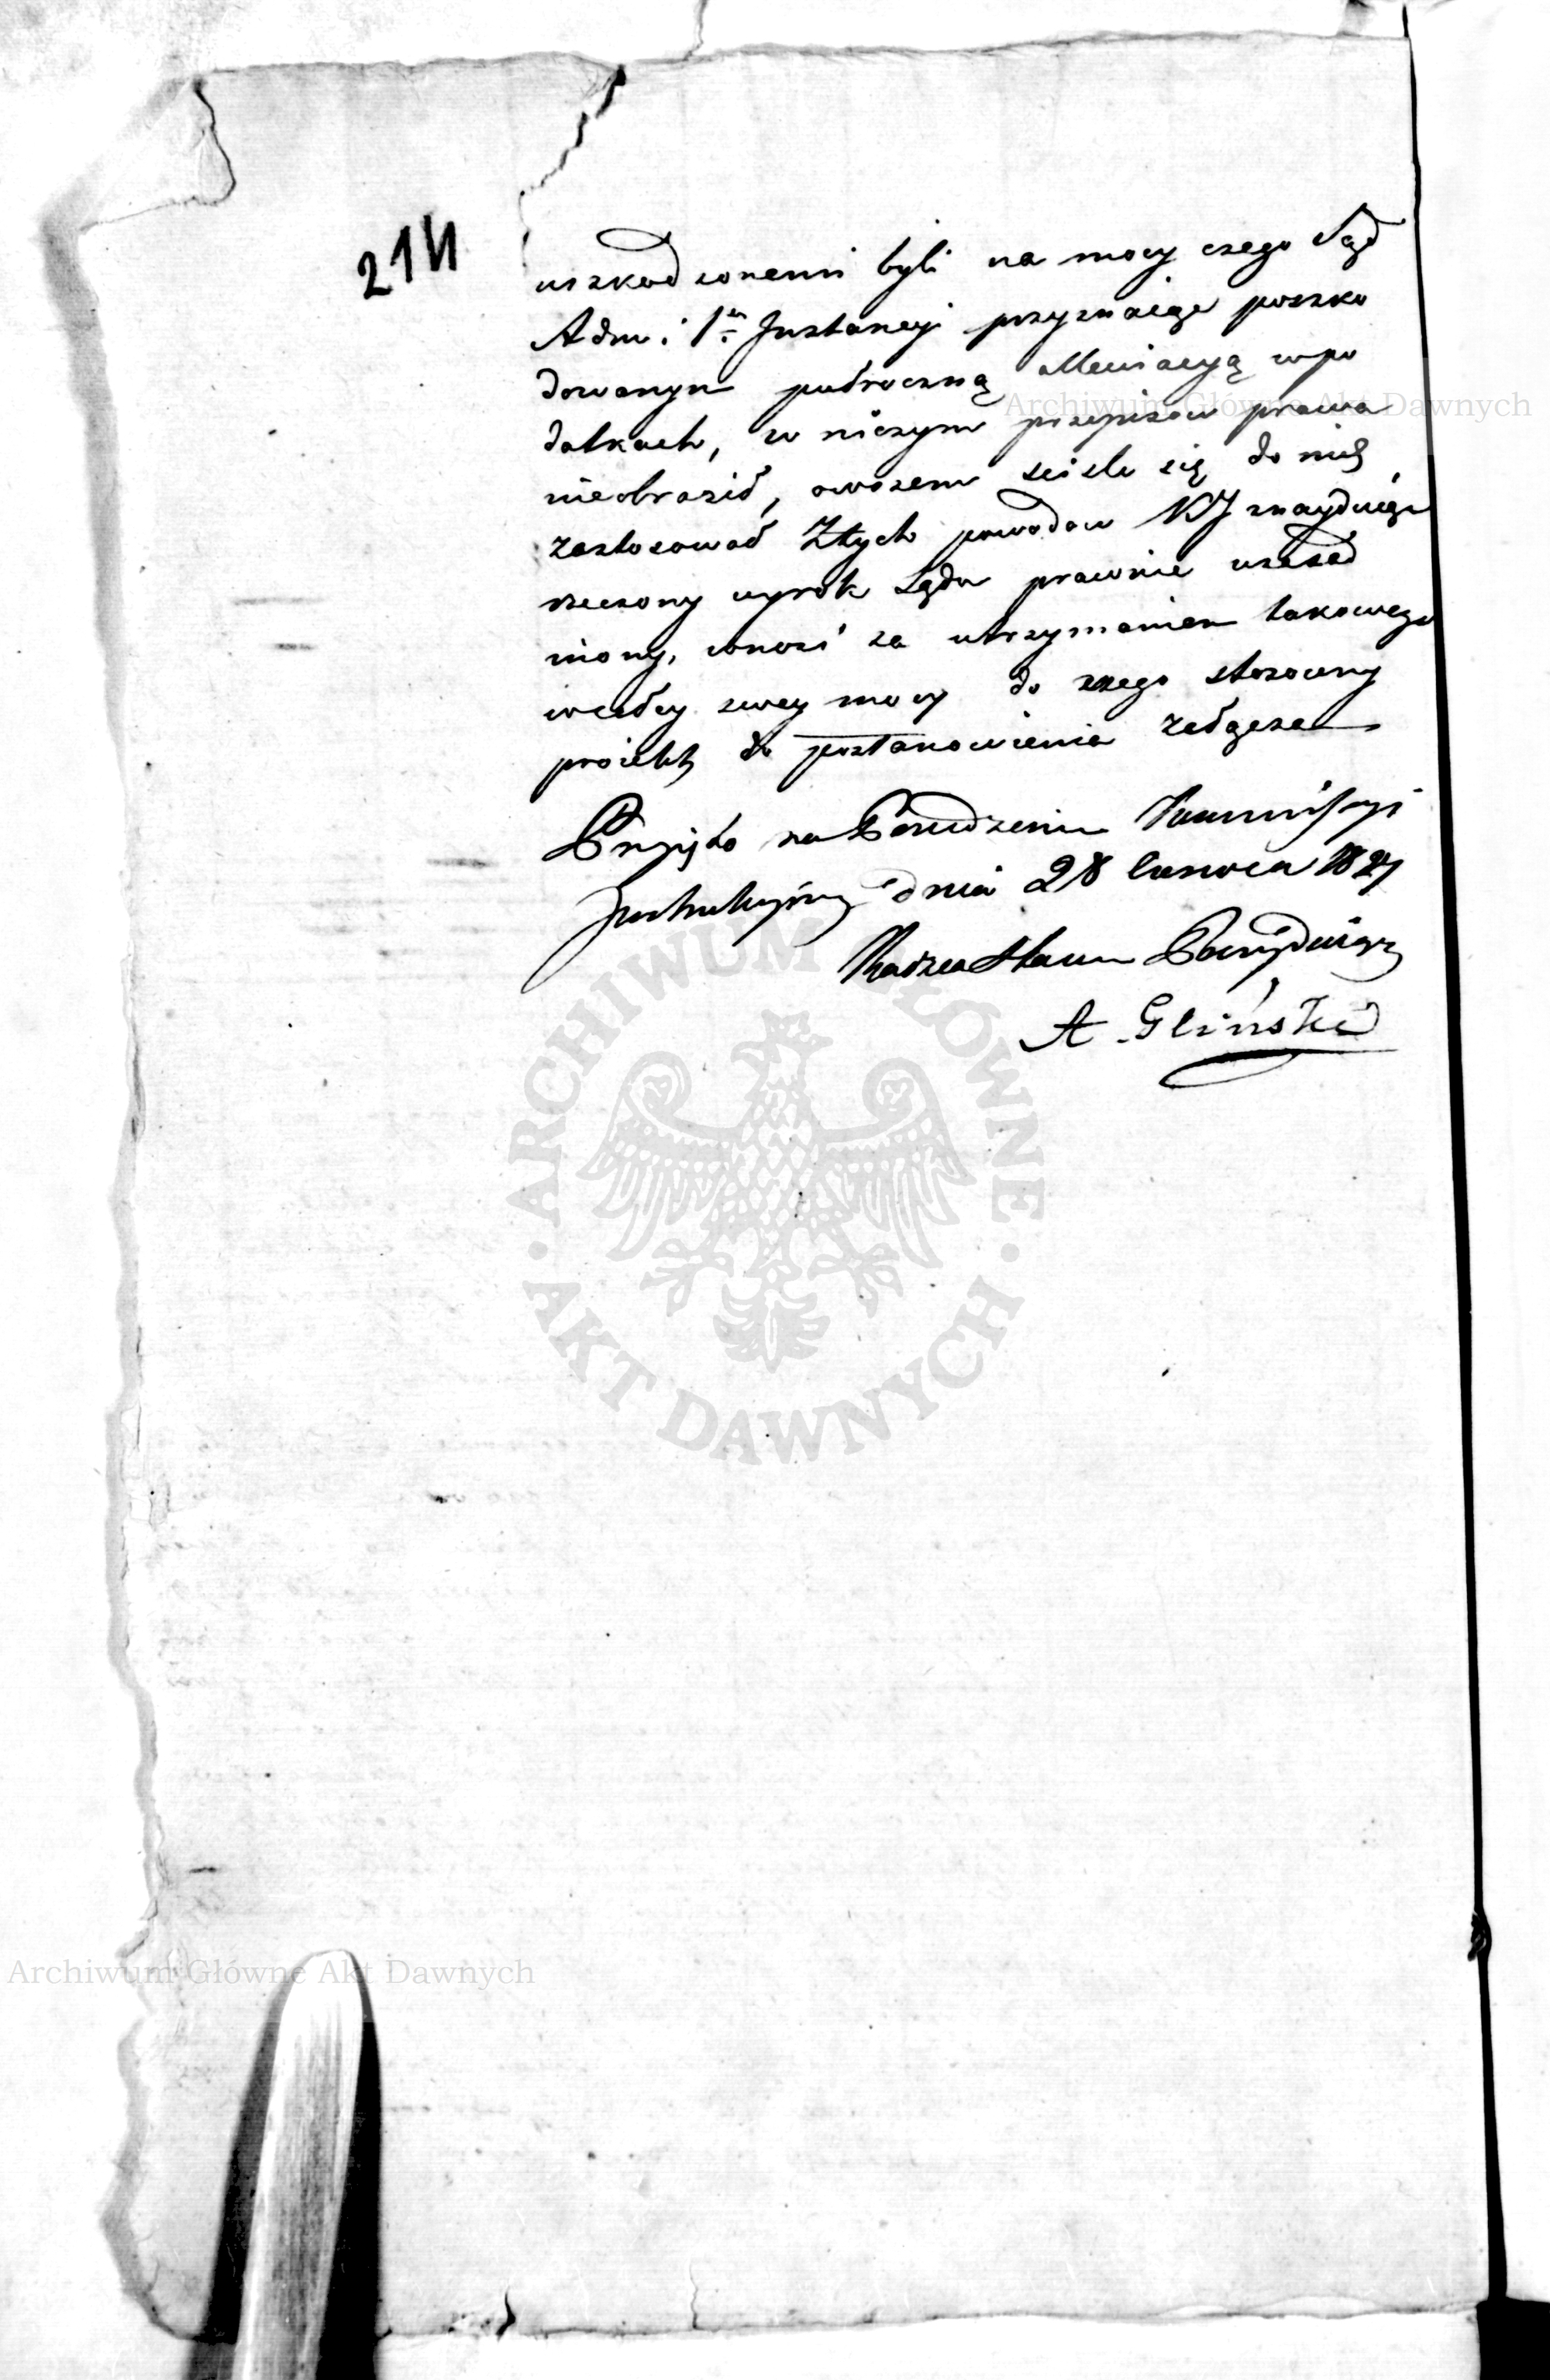 214
uszkodzonemi byli na mocy czego Sąd
Adm: 1ey Instancyi przyznaiąc poszko
dowanym półroczną Alleviacyą w po
datkach, w niczym przepisow prawa
nieobraził, owszem sciśle się do nich
zastosował Ztych powodow KJ znayduiąc
rzeczony wyrok Sądu prawnie uzasad
niony, wnosi za utrzymaniem takowego
wcałey swey mocy do czego stosowny
proiekt do postanowienia załącza
Przyięto na Posiedzeniu Kommissyi
Instrukcyiney dnia 28 Czerwca 1821
Radzca Stanu Prezyduiący
A. Gliński
Archiwum Główne Akt Dawnych
ARCHIWUM GŁÓWNE AKT DAWNYCH
Archiwum Główne Akt Dawnych